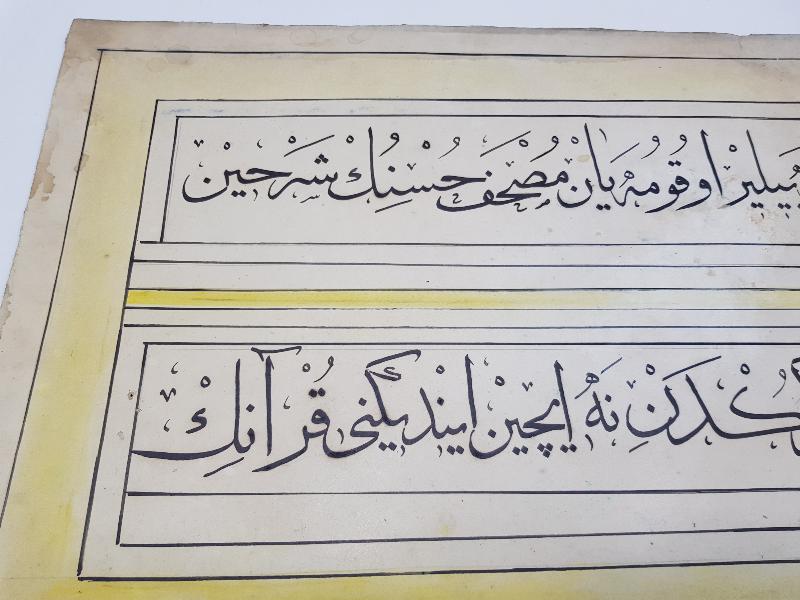 بيلير اوقومه‌يان مُصْحَفِ حُسْنِڭ شَرْحين
كُدَنْ نَهْ ايچين ايندیگنی قُرْآنِڭ